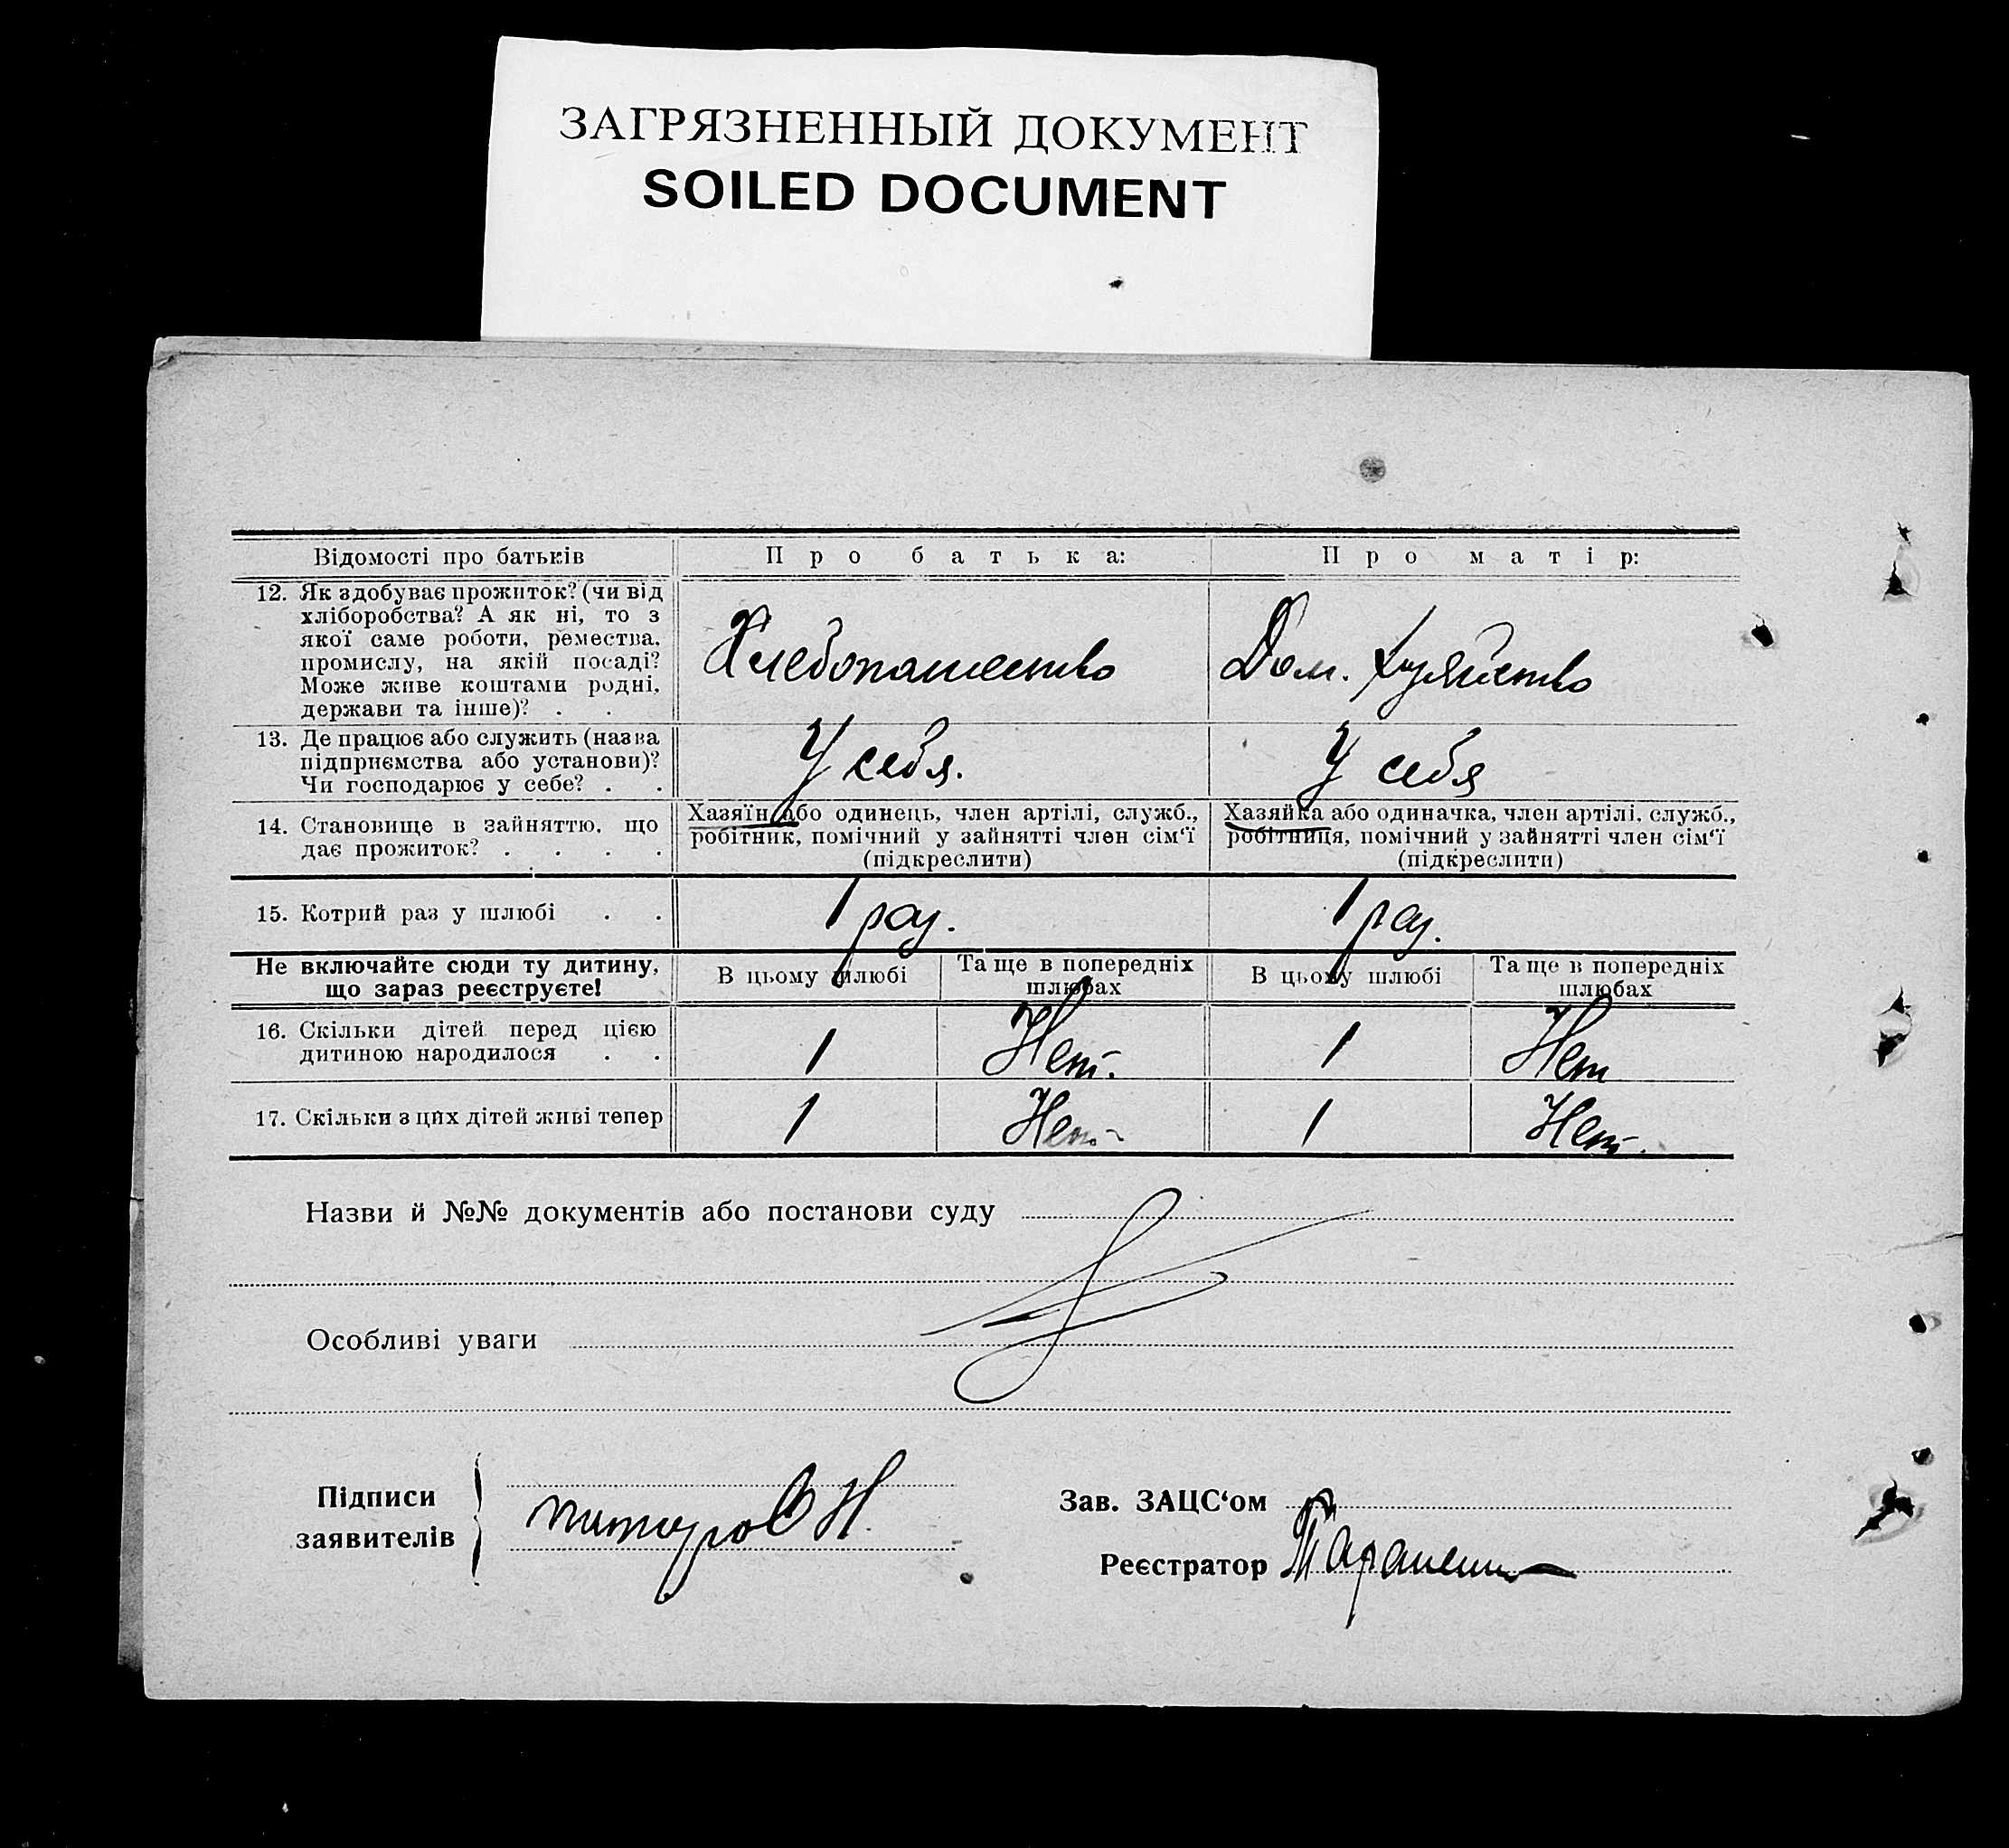 ЗАГРЯЗНЕННЫЙ ДОКУМЕНТ
SOILED DOCUMENT
Відомості про батьків
Про батька:
Про матір:
12. Як здобуває прожиток? (чи від
хліборобства? А як ні, то з
якої саме роботи, ремества,
промислу, на якій посаді?
Може живе коштами родні,
держави та інше)? . .
Хлебопашество
Дом. хузяйство
13. Де працює або служить (назва
підприємства або установи)?
Чи господарює у себе? . .
У себя.
У себя
14. Становище в зайняттю, що
дає прожиток? . . . .
Хазяїн або одинець, член артілі, служб.,
робітник, помічний у зайнятті член сім'ї
(підкреслити)
Хазяйка або одиначка, член артілі, служб.,
робітниця, помічний у зайнятті член сім'ї
(підкреслити)
15. Котрий раз у шлюбі . .
1 раз.
1 раз.
Не включайте сюди ту дитину,
що зараз реєструєте!
В цьому шлюбі
Та ще в попередніх
шлюбах
В цьому шлюбі
Та ще в попередніх
шлюбах
16. Скільки дітей перед цією
дитиною народилося . .
1
Нет.
1
Нет
17. Скільки з цих дітей живі тепер
1
Нет
1
Нет.
Назви й №№ документів або постанови суду
Особливі уваги
Підписи
заявителів
Зав. ЗАЦС'ом
Реєстратор